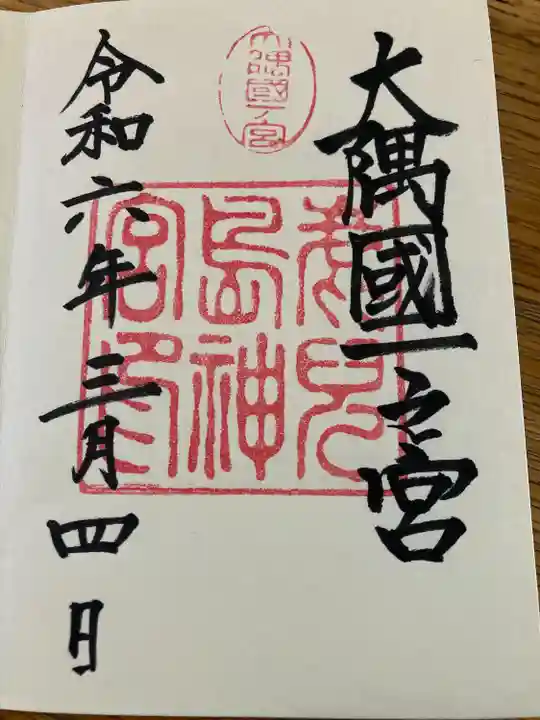 大隅國一之宮
大隅國一ノ宮
鹿児島神宮印
令和六年三月四日